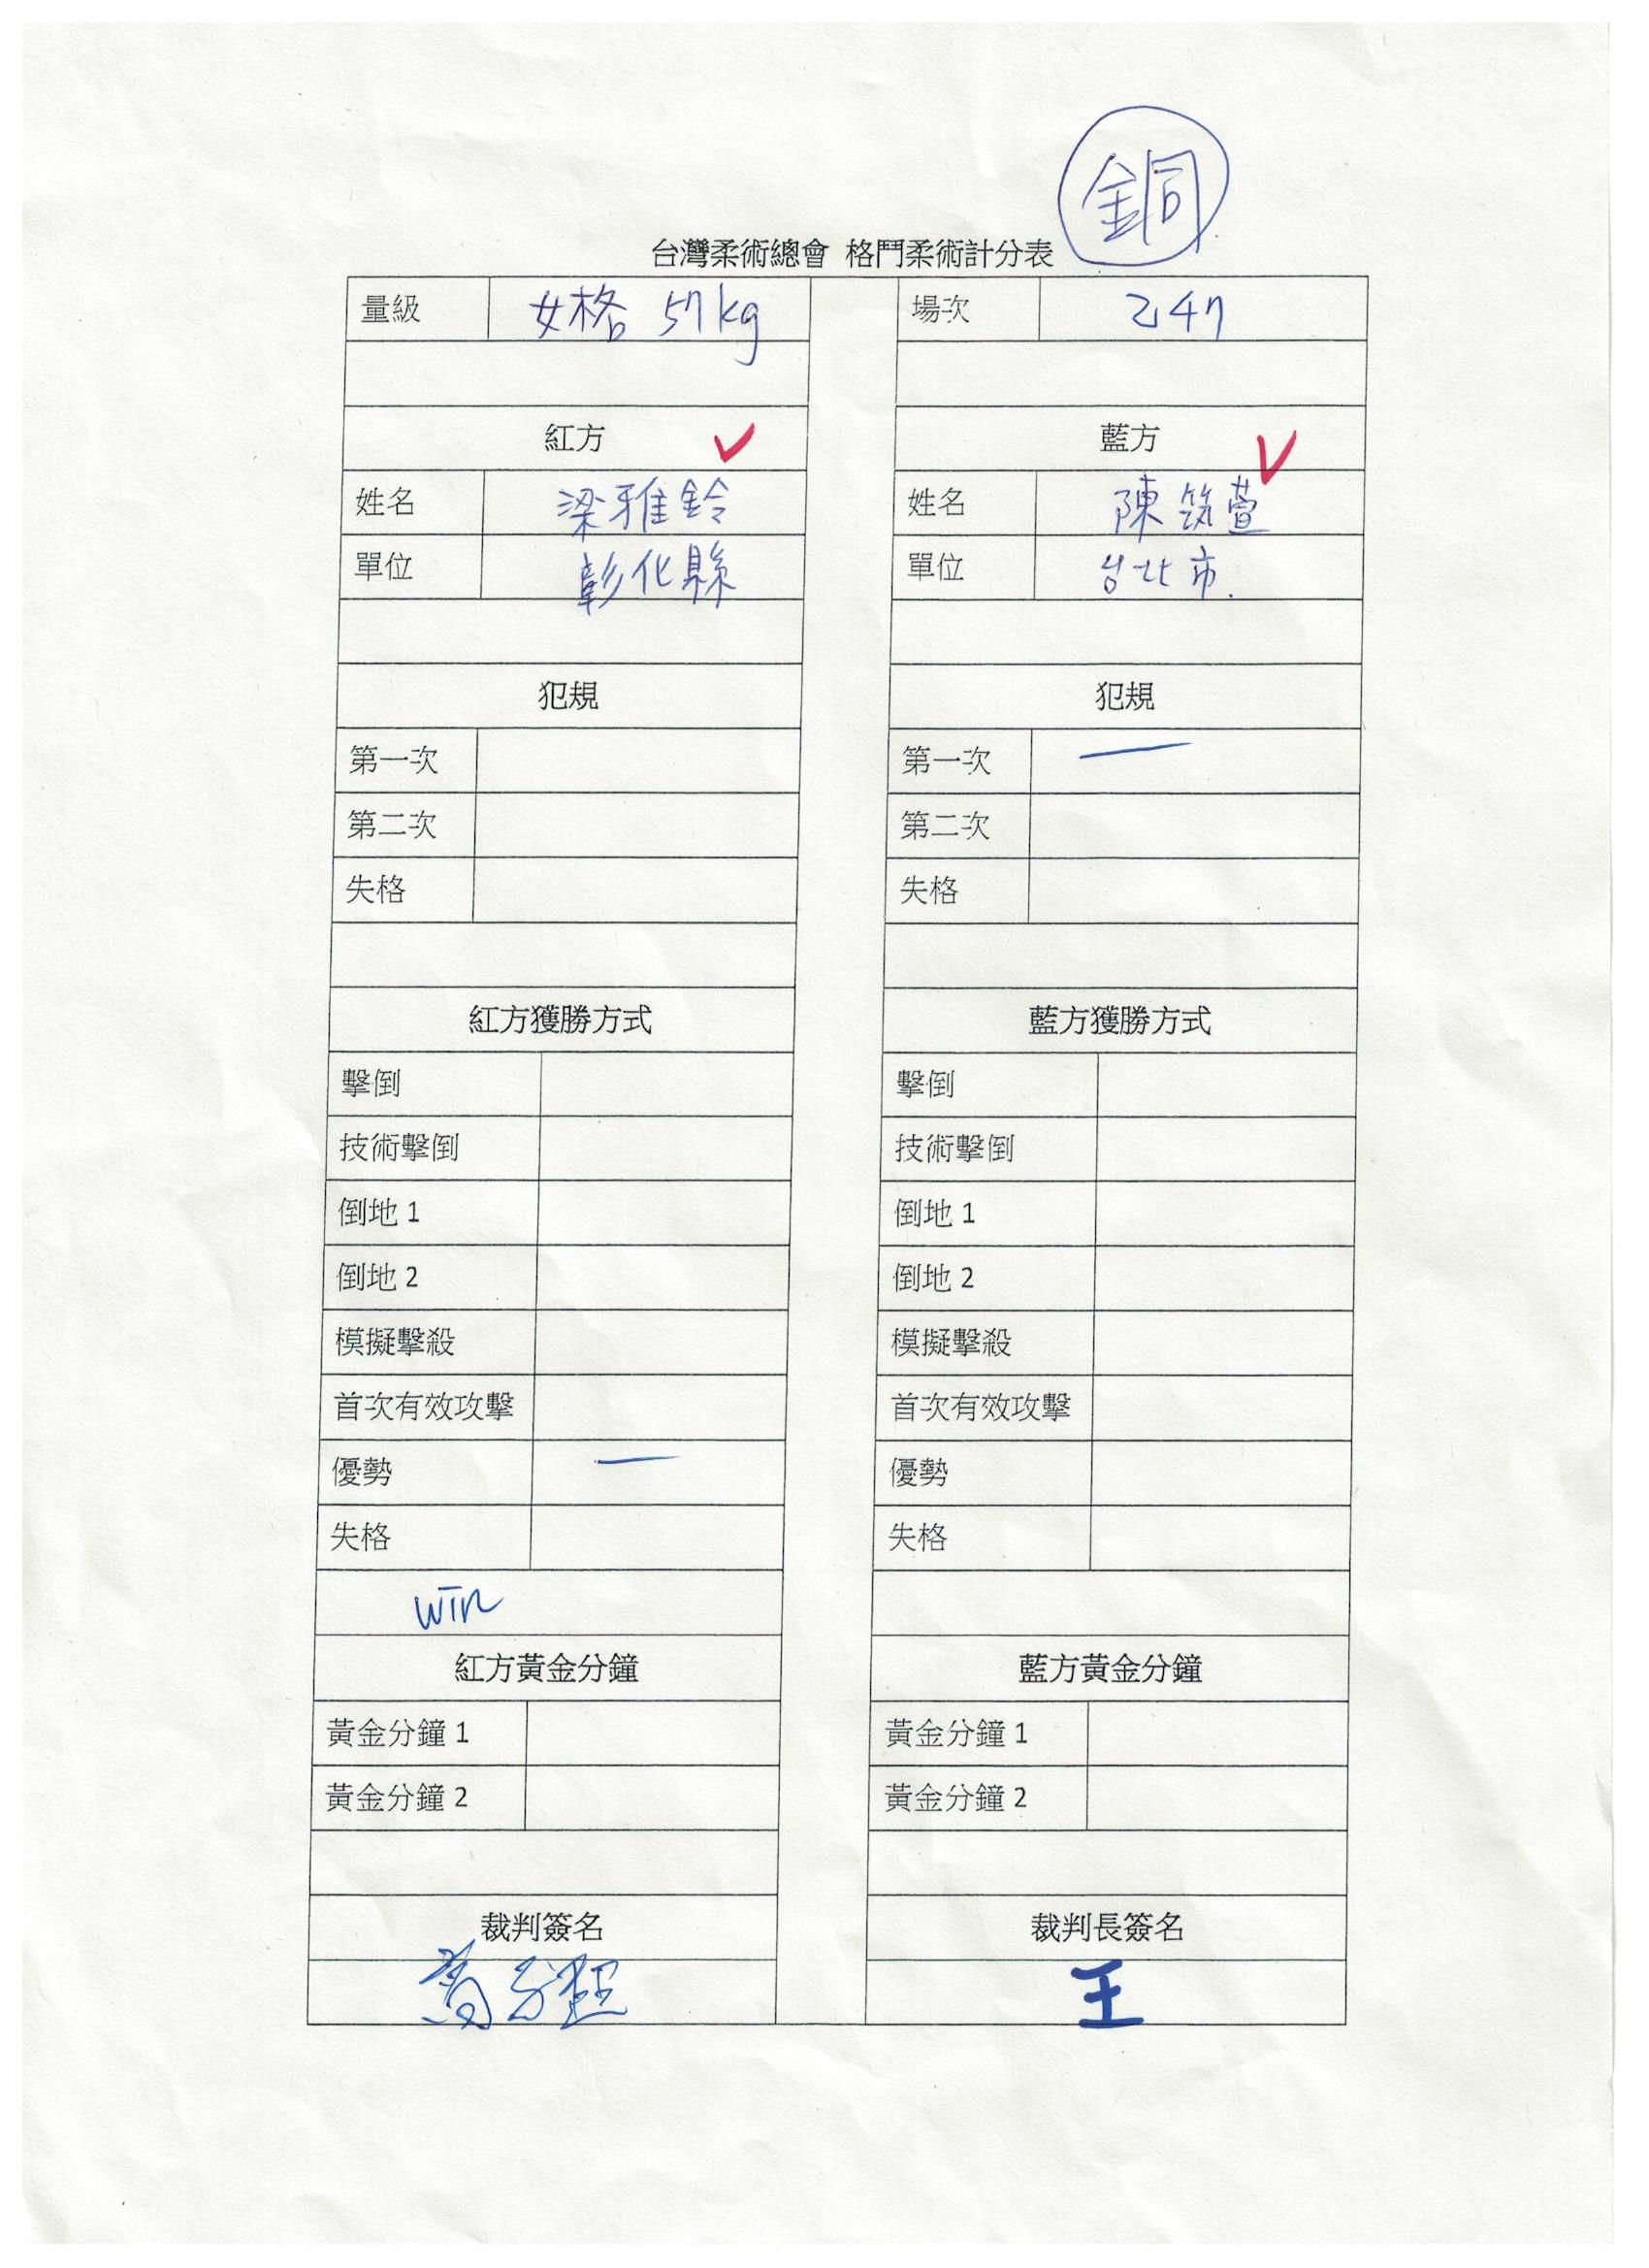 銅
台灣柔術總會 格鬥柔術計分表
量級 女格 57kg 場次 247
紅方 ✓ 藍方 ✓
姓名 梁雅鈴 姓名 陳筑萱
單位 彰化縣 單位 台北市.
犯規 犯規
第一次 第一次 —
第二次 第二次
失格 失格
紅方獲勝方式 藍方獲勝方式
擊倒 擊倒
技術擊倒 技術擊倒
倒地 1 倒地 1
倒地 2 倒地 2
模擬擊殺 模擬擊殺
首次有效攻擊 首次有效攻擊
優勢 — 優勢
失格 失格
WIN
紅方黃金分鐘 藍方黃金分鐘
黃金分鐘 1 黃金分鐘 1
黃金分鐘 2 黃金分鐘 2
裁判簽名 裁判長簽名
王